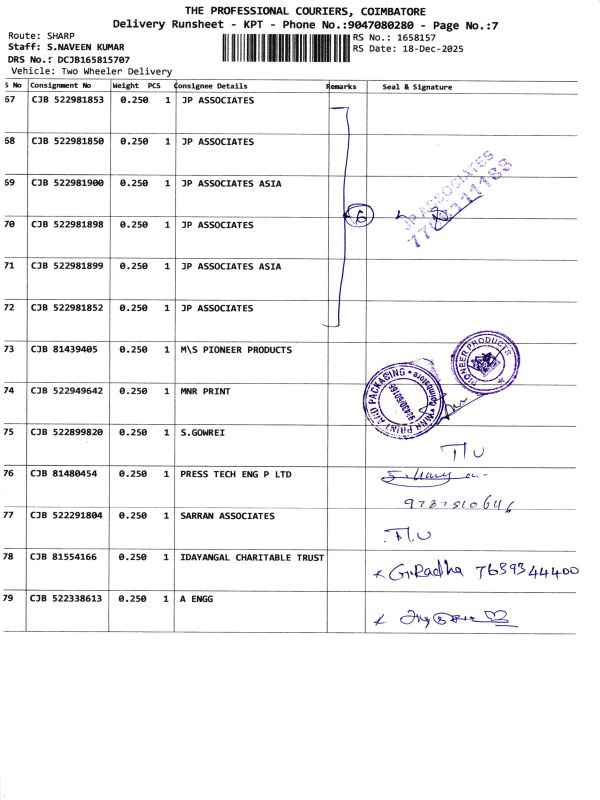 THE PROFESSIONAL COURIERS, COIMBATORE
Delivery Runsheet - KPT - Phone No.:9047080280 - Page No.:7
Route: SHARP
RS No.: 1658157
Staff: S.NAVEEN KUMAR
RS Date: 18-Dec-2025
DRS No.: DCJB165815707
Vehicle: Two Wheeler Delivery
S No Consignment No Weight PCS Consignee Details Remarks Seal & Signature
67 CJB 522981853 0.250 1 JP ASSOCIATES
68 CJB 522981850 0.250 1 JP ASSOCIATES
69 CJB 522981900 0.250 1 JP ASSOCIATES ASIA
JP ASSOCIATES
6
70 CJB 522981898 0.250 1 JP ASSOCIATES
71 CJB 522981899 0.250 1 JP ASSOCIATES ASIA
72 CJB 522981852 0.250 1 JP ASSOCIATES
73 CJB 81439405 0.250 1 M\S PIONEER PRODUCTS
PIONEER PRODUCTS
74 CJB 522949642 0.250 1 MNR PRINT
PRINT AND PACKAGING
75 CJB 522899820 0.250 1 S.GOWREI
76 CJB 81480454 0.250 1 PRESS TECH ENG P LTD
77 CJB 522291804 0.250 1 SARRAN ASSOCIATES
78 CJB 81554166 0.250 1 IDAYANGAL CHARITABLE TRUST
G.Radha 7639344400
79 CJB 522338613 0.250 1 A ENGG